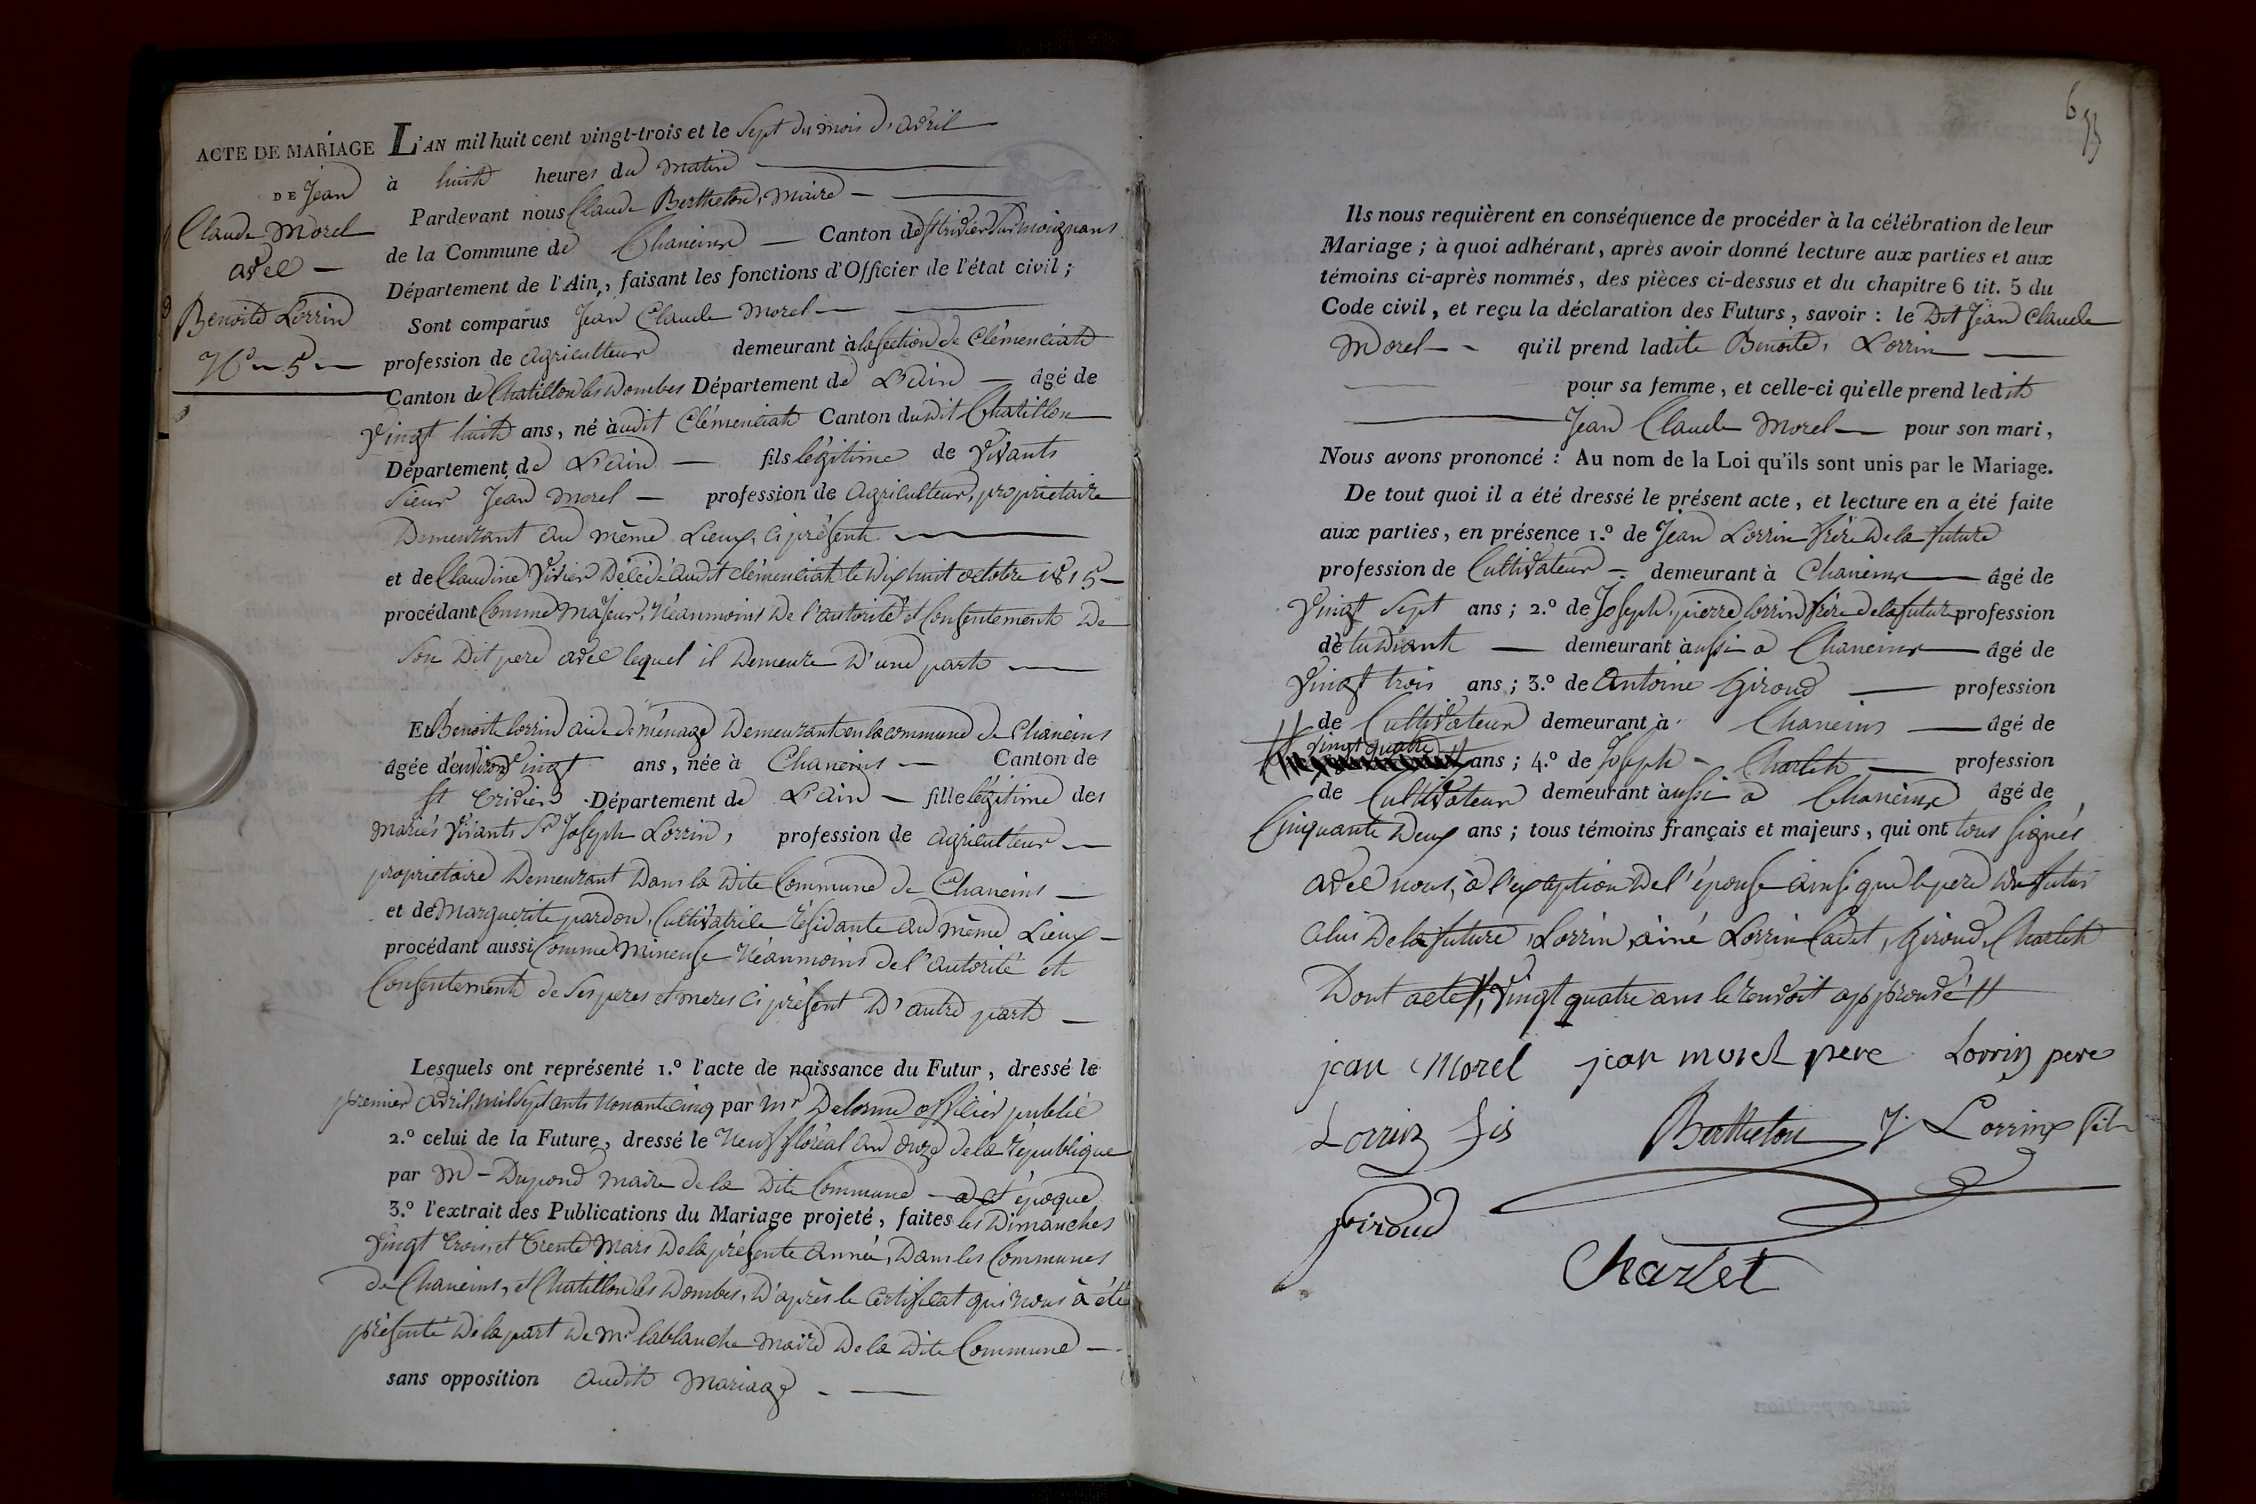 ACTE DE MARIAGE
DE Jean
Claude Morel
avec
Benoite Lorrin
N.º 5
L'AN mil huit cent vingt-trois et le Sept du mois d'avril
à huit heures du matin
Pardevant nous Claude Bertheton, maire
de la Commune de Chaneins Canton de St trivier Sur moignans
Département de l'Ain, faisant les fonctions d'Officier de l'état civil ;
Sont comparus Jean Claude Morel
profession de agriculteur demeurant à la Section de Clémenciat
Canton de Chatillon les Dombes Département de L'ain âgé de
Vingt huit ans, né audit Clémenciat Canton dudit Chatillon
Département de L'ain fils légitime de Vivants
Sieur Jean Morel profession de agriculteur, propriétaire
Demeurant au même Lieux, ci présent
et de Claudine Vivier Décédé audit clémenciat le Dix huit octobre 1815
procédant Comme Majeur, Néanmoins De l'autorité et Consentement De
Son Dit pere avec lequel il Demeure D'une part
Et Benoit Lorrin aide de ménage Demeurant en la commune de Chaneins
âgée d'environ Vingt ans, née à Chaneins Canton de
St Trivier Département de L'ain fille légitime des
mariés Vivants Sr Joseph Lorrin, profession de agriculteur
propriétaire Demeurant Dans la Dite Commune de Chaneins
et de Marguerite pardon, Cultivatrice résidante au même Lieux
procédant aussi Comme Mineuse Néanmoins de l'autorité et
Consentement de Ses peres et meres ci présent D'autre part
Lesquels ont représenté 1.º l'acte de naissance du Futur, dressé le
premier avril, mil Sept cents Nonante cinq par Mr Delorme officier public
2.º celui de la Future, dressé le Neuf floréal an onze de la république
par M Dupond maire de la Dite Commune a cet époque
3.º l'extrait des Publications du Mariage projeté, faites les Dimanches
Vingt trois et trente Mars De la présente année, Dans les Communes
de Chaneins, et Chatillon les Dombes, D'après le Certificat qui nous à été
présenté De la part De Mr lablanche Maire De la Dite Commune
sans opposition audit Mariage
6
Ils nous requièrent en conséquence de procéder à la célébration de leur
Mariage ; à quoi adhérant, après avoir donné lecture aux parties et aux
témoins ci-après nommés, des pièces ci-dessus et du chapitre 6 tit. 5 du
Code civil, et reçu la déclaration des Futurs, savoir : le Dit Jean Claude
Morel qu'il prend ladite Benoite, Lorrin
pour sa femme, et celle-ci qu'elle prend ledit
Jean Claude Morel pour son mari,
Nous avons prononcé : Au nom de la Loi qu'ils sont unis par le Mariage.
De tout quoi il a été dressé le présent acte, et lecture en a été faite
aux parties, en présence 1.º de Jean Lorrin frère De la future
profession de Cultivateur demeurant à Chaneins âgé de
Vingt Sept ans ; 2.º de Joseph, pierre Lorrin frère de la future profession
détudiant demeurant aussi a Chaneins âgé de
Vingt trois ans ; 3.º de Antoine Giroud profession
de Cultivateur demeurant à Chaneins âgé de
// Vingt quatre // ans ; 4.º de Joseph Charlet profession
de Cultivateur demeurant aussi a Chaneins âgé de
Cinquante Deux ans ; tous témoins français et majeurs, qui ont tous Signés
avec nous, à l'exception De l'épouse ainsi que le pere du futur
celui De la future, Lorrin, ainé Lorrin Cadet, Giroud, Charlet
Dont acte //, Vingt quatre ans le renvoit approuvé //
jean Morel jean morel pere Lorrin pere
Lorrin fis Bertheton J. Lorrin fils
Giroud
Charlet